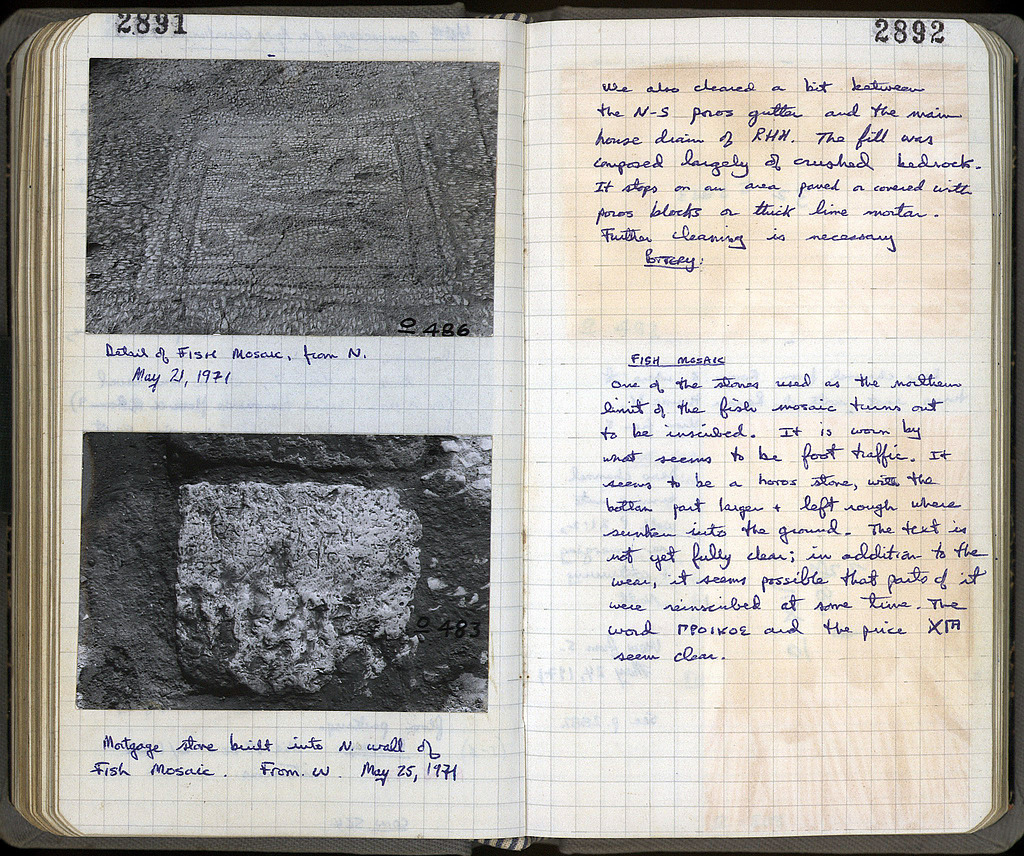 2891
O 486
Detail of FISH MOSAIC, from N.
May 21, 1971
O 483
Mortgage stone built into N. wall of
Fish Mosaic. From W. May 25, 1971
2892
We also cleared a bit between
the N-S poros gutter and the main
house drain of RHH. The fill was
composed largely of crushed bedrock.
It stops on an area paved or covered with
poros blocks or thick lime mortar.
Further cleaning is necessary
POTTERY:
FISH MOSAIC
One of the stones used as the northern
limit of the fish mosaic turns out
to be inscribed. It is worn by
what seems to be foot traffic. It
seems to be a horos stone, with the
bottom part larger + left rough where
sunken into the ground. The text is
not yet fully clear; in addition to the
wear, it seems possible that parts of it
were reinscribed at some time. The
word ΠΡΟΙΚΟΣ and the price
seem clear.